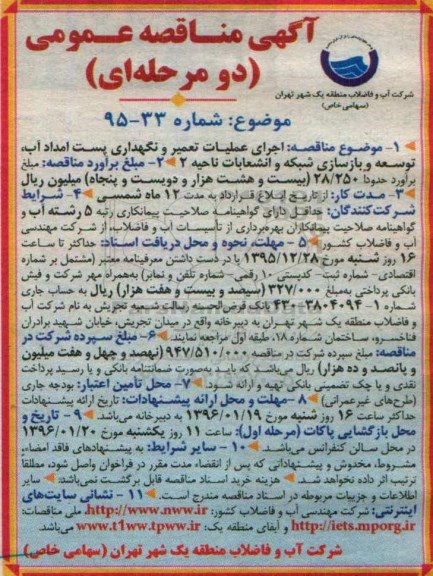 آگهی مناقصه عمومی
(دو مرحله‌ای)
شرکت آب و فاضلاب منطقه یک شهر تهران
(سهامی خاص)
موضوع: شماره ۳۳-۹۵
۱- موضوع مناقصه: اجرای عملیات تعمیر و نگهداری پست امداد آب،
توسعه و بازسازی شبکه و انشعابات ناحیه ۲ ۲- مبلغ برآورد مناقصه: مبلغ
برآورد حدودا ۲۸/۲۵۰ (بیست و هشت هزار و دویست و پنجاه) میلیون ریال
۳- مدت کار: از تاریخ ابلاغ قرارداد به مدت ۱۲ ماه شمسی ۴- شرایط
شرکت‌کنندگان: حداقل دارای گواهینامه صلاحیت پیمانکاری رتبه ۵ رشته آب و
گواهینامه صلاحیت پیمانکاران بهره‌برداری از تأسیسات آب و فاضلاب، از شرکت مهندسی
آب و فاضلاب کشور ۵- مهلت، نحوه و محل دریافت اسناد: حداکثر تا ساعت
۱۶ روز شنبه مورخ ۱۳۹۵/۱۲/۲۸ با در دست داشتن معرفینامه معتبر (مشتمل بر شماره
اقتصادی- شماره ثبت- کدپستی ۱۰ رقمی- شماره تلفن و نمابر) به‌همراه مهر شرکت و فیش
بانکی پرداختی به‌مبلغ ۳۲۷/۰۰۰ (سیصد و بیست و هفت هزار) ریال به حساب جاری
شماره ۱-۴۳۰۳۸۰۴۰۹۴ بانک قرض‌الحسنه رسالت شعبه تجریش به نام شرکت آب
و فاضلاب منطقه یک شهر تهران به دبیرخانه واقع در میدان تجریش، خیابان شهید برادران
فناخسرو، ساختمان شماره ۱۸، طبقه اول مراجعه نمایند. ۶- مبلغ سپرده شرکت در
مناقصه: مبلغ سپرده شرکت در مناقصه ۹۴۷/۵۱۰/۰۰۰ (نهصد و چهل و هفت میلیون
و پانصد و ده هزار) ریال می‌باشد که باید به‌صورت ضمانتنامه بانکی و یا رسید پرداخت
نقدی و یا چک تضمینی بانکی تهیه و ارائه شود. ۷- محل تأمین اعتبار: بودجه جاری
(طرح‌های غیرعمرانی) ۸- مهلت و محل ارائه پیشنهادات: تاریخ ارائه پیشنهادات
حداکثر ساعت ۱۶ روز شنبه مورخ ۱۳۹۶/۰۱/۱۹ به دبیرخانه می‌باشد. ۹- تاریخ و
محل بازگشایی پاکات (مرحله اول): ساعت ۱۱ روز یکشنبه مورخ ۱۳۹۶/۰۱/۲۰
در محل سالن کنفرانس می‌باشد. ۱۰- سایر شرایط: به پیشنهادهای فاقد امضاء،
مشروط، مخدوش و پیشنهاداتی که پس از انقضاء مدت مقرر در فراخوان واصل شود، مطلقاً
ترتیب اثر داده نخواهد شد. هزینه خرید اسناد مناقصه قابل برگشت نمی‌باشد؛ سایر
اطلاعات و جزییات مربوطه در اسناد مناقصه مندرج است. ۱۱- نشانی سایت‌های
اینترنتی: شرکت مهندسی آب و فاضلاب کشور: http://www.nww.ir، ملی مناقصات:
http://iets.mporg.ir و آبفای منطقه یک: www.t1ww.tpww.ir می‌باشد.
شرکت آب و فاضلاب منطقه یک شهر تهران (سهامی خاص)